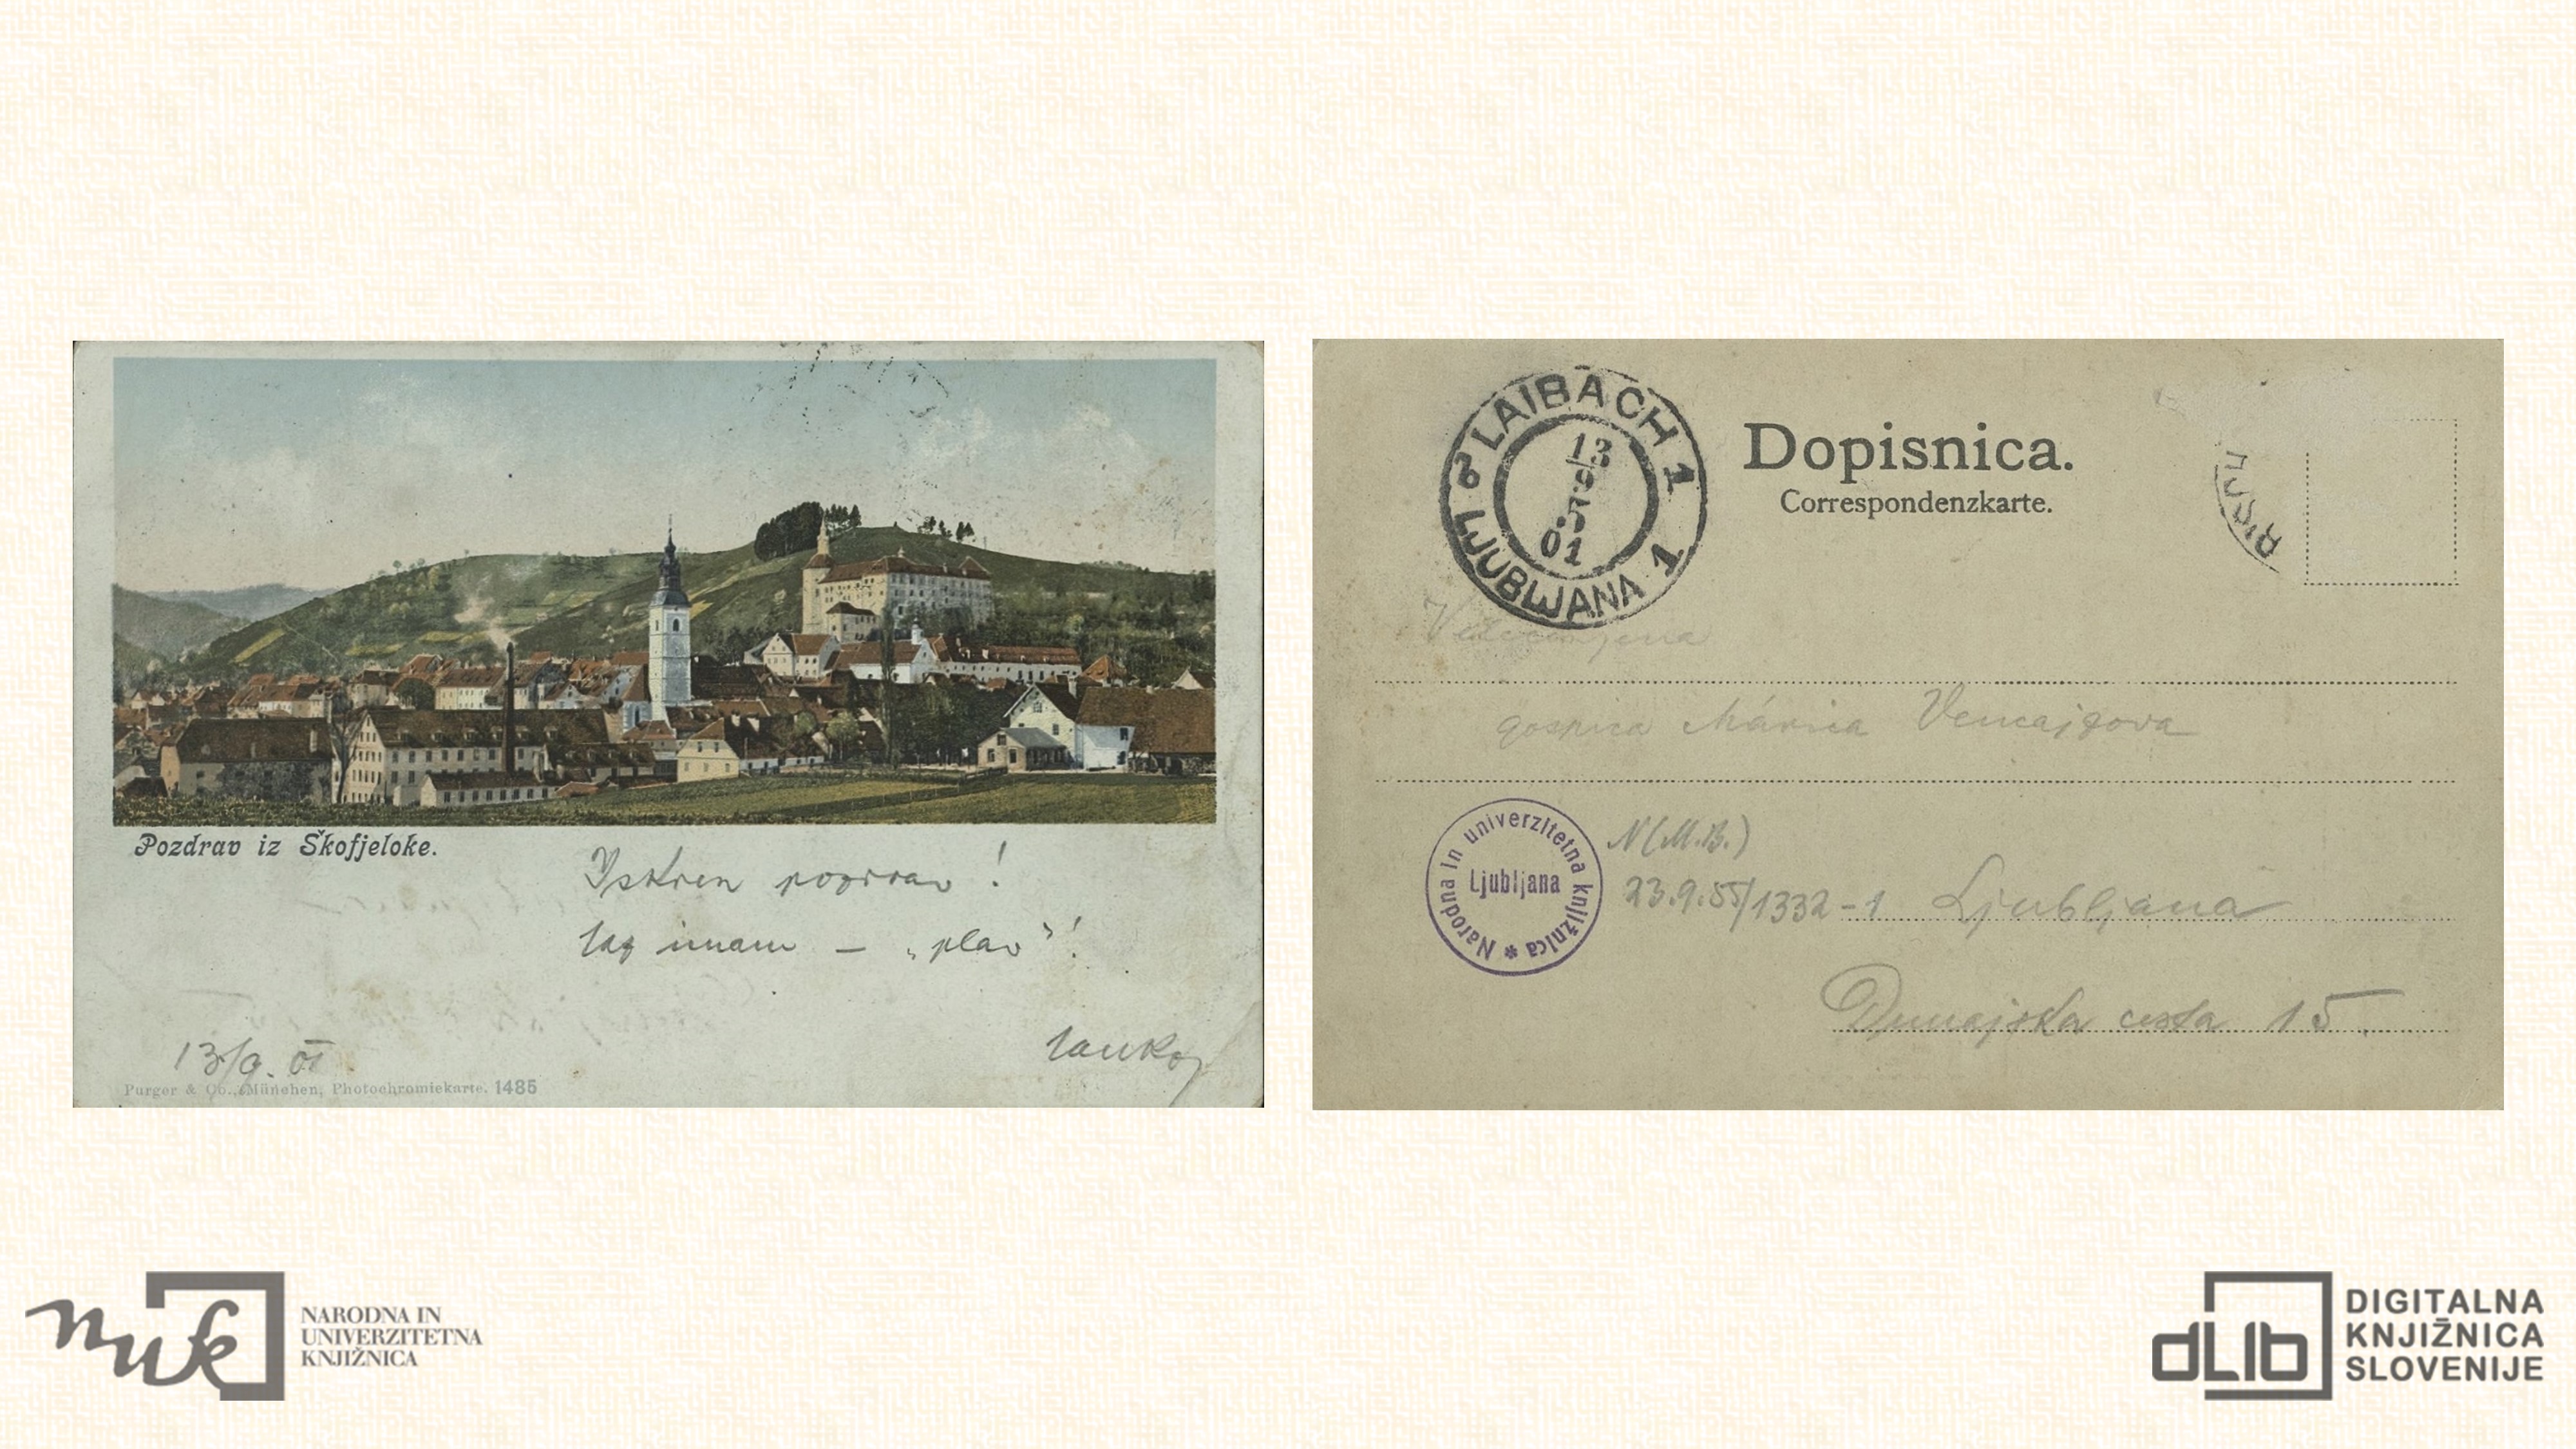 Pozdrav iz Škofjeloke.
Iskren pozdrav!
imam – „plav"!
13/9. 01
Purger & Co., München, Photochromiekarte. 1485
LAIBACH 1
LJUBLJANA 1
13
9
5
01
Dopisnica.
Correspondenzkarte.
gospica Márica Vencajzova
Narodna in univerzitetna knjižnica *
Ljubljana
N(M.B.)
23.9.55/1332-1
Ljubljana
Dunajska cesta 15.
nuk
NARODNA IN
UNIVERZITETNA
KNJIŽNICA
dLib
DIGITALNA
KNJIŽNICA
SLOVENIJE